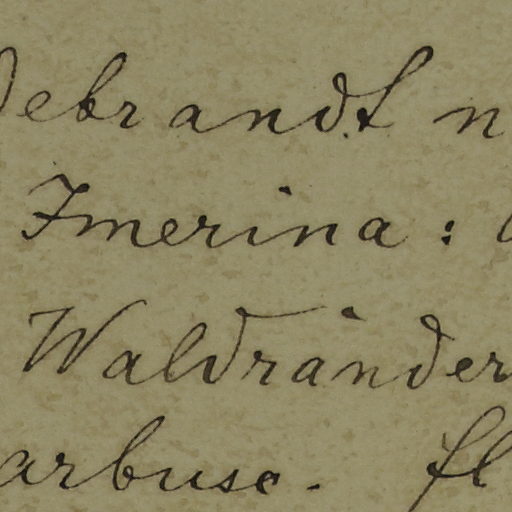 debrandt n
Imerina:
Waldränder
arbusc. fl